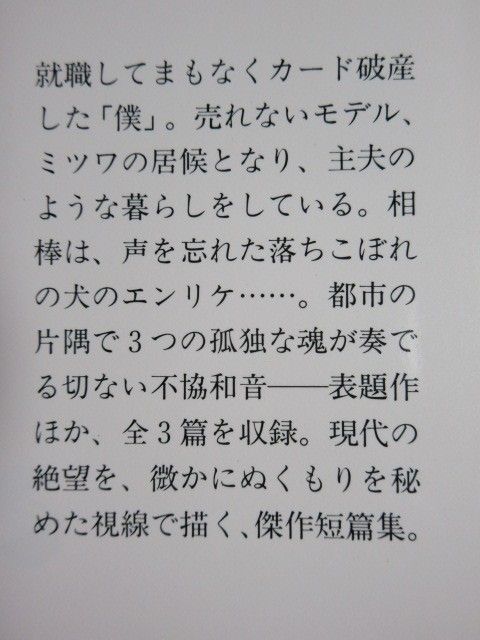 就職してまもなくカード破産
した「僕」。売れないモデル、
ミツワの居候となり、主夫の
ような暮らしをしている。相
棒は、声を忘れた落ちこぼれ
の犬のエンリケ……。都市の
片隅で3つの孤独な魂が奏で
る切ない不協和音――表題作
ほか、全3篇を収録。現代の
絶望を、微かにぬくもりを秘
めた視線で描く、傑作短篇集。